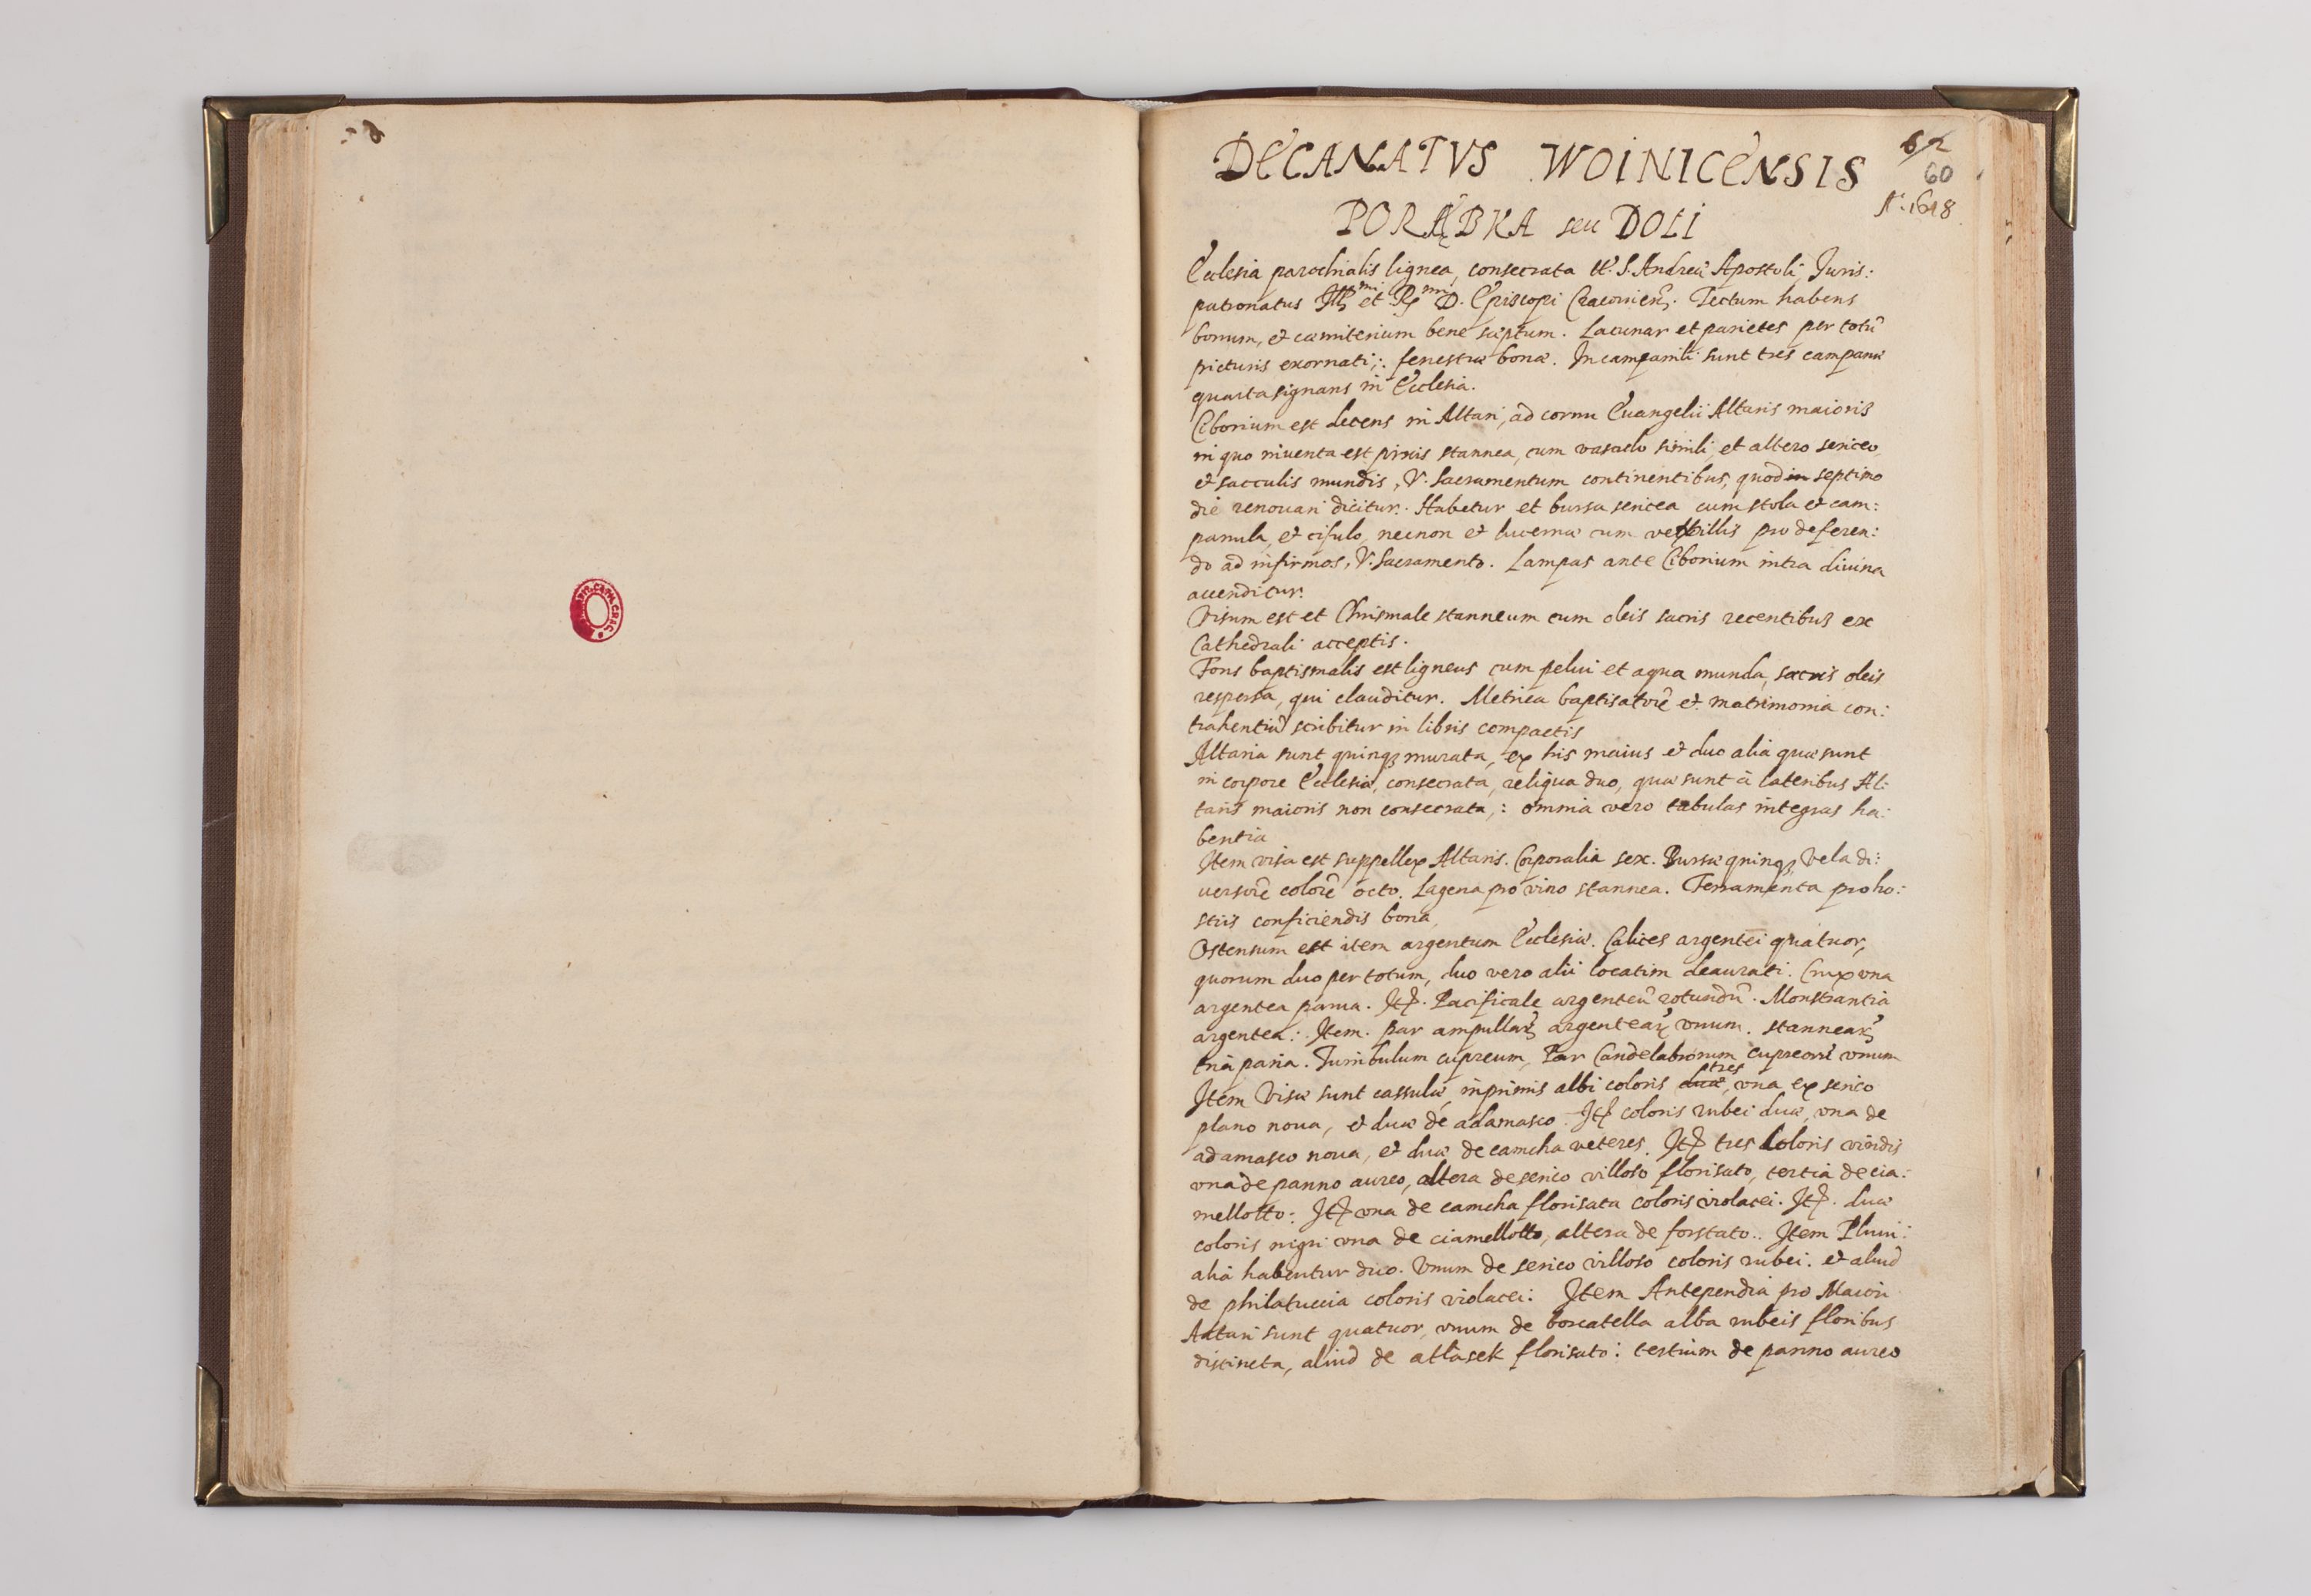 DECANATVS WOINICENSIS
62
60
A. 1618
PORĄBKA seu DOLI
Ecclesia parochialis lignea, consecrata tt. S. Andreæ Apostoli, Juris:
patronatus Ill^mi et R^mi D. Episcopi Cracovien. Tectum habens
bonum, et cæmiterium bene sæptum. Lacunar et parietes per totũ
picturis exornati;: fenestræ bonæ. In campanili sunt tres campanæ
quarta signans in Ecclesia.
Ciborium est decens in Altari, ad cornu Euangelii Altaris maioris
in quo inuenta est pixis stannea, cum vasculo simili, et altero sericeo
et sacculis mundis, V. Sacramentum continentibus, quod in septimo
die renouari dicitur. Habetur et bursa sericea cum stola et cam:
panula, et cifulo, necnon et lucernæ cum vexillis pro deferen:
do ad infirmos, V. Sacramento. Lampas ante Ciborium intra diuina
accenditur.
Visum est et Chrismale stanneum cum oleis sacris recentibus ex
Cathedrali acceptis.
Fons baptismalis est ligneus cum pelui et aqua munda, sacris oleis
respersa, qui clauditur. Metrica baptisatorũ et matrimonia con:
trahentiũ scribitur in libris compactis
Altaria sunt quinqꝫ murata, ex his maius et duo alia quæ sunt
in corpore Ecclesiæ, consecrata, reliqua duo, quæ sunt à lateribus Al:
taris maioris non consecrata,: omnia vero tabulas integras ha:
bentia
Item visa est suppellex Altaris. Corporalia sex. Bursæ quinqꝫ, Vela di:
uersorũ colorũ octo. Lagena pro vino stannea. Ferramenta pro ho:
stiis conficiendis bona
Ostensum est item argentum Ecclesiæ. Calices argentei quatuor,
quorum duo per totum, duo vero alii locatim deaurati. Crux vna
argentea parua. Itẽ. Pacificale argenteũ rotundũ. Monstrantia
argentea: Item. par ampullarꝫ argentearꝫ vnum. stannearꝫ
tria paria. Turibulum cupreum, Par Candelabrorum cupreorũ vnum
Item Visæ sunt cassulæ, inprimis albi coloris duæ tres, vna ex serico
plano noua, et duæ de adamasco. Itẽ coloris rubei duæ, vna de
adamasco noua, et duæ de camcha veteres. Itẽ tres Coloris viridis
vna de panno aureo, altera de serico villoso florisato, tertia de cia:
mellotto: Itẽ vna de camcha florisata coloris violacei. Itẽ. duæ
coloris nigri vna de ciamellotto, altera de forstato.. Item Pluui:
alia habentur duo. Vnum de serico villoso coloris rubei. et aliud
de philatuccia coloris violacei: Item Antependia pro Maiori
Altari sunt quatuor, vnum de borcatella alba rubeis floribus
distincta, aliud de atlasek florisato: tertium de panno aureo